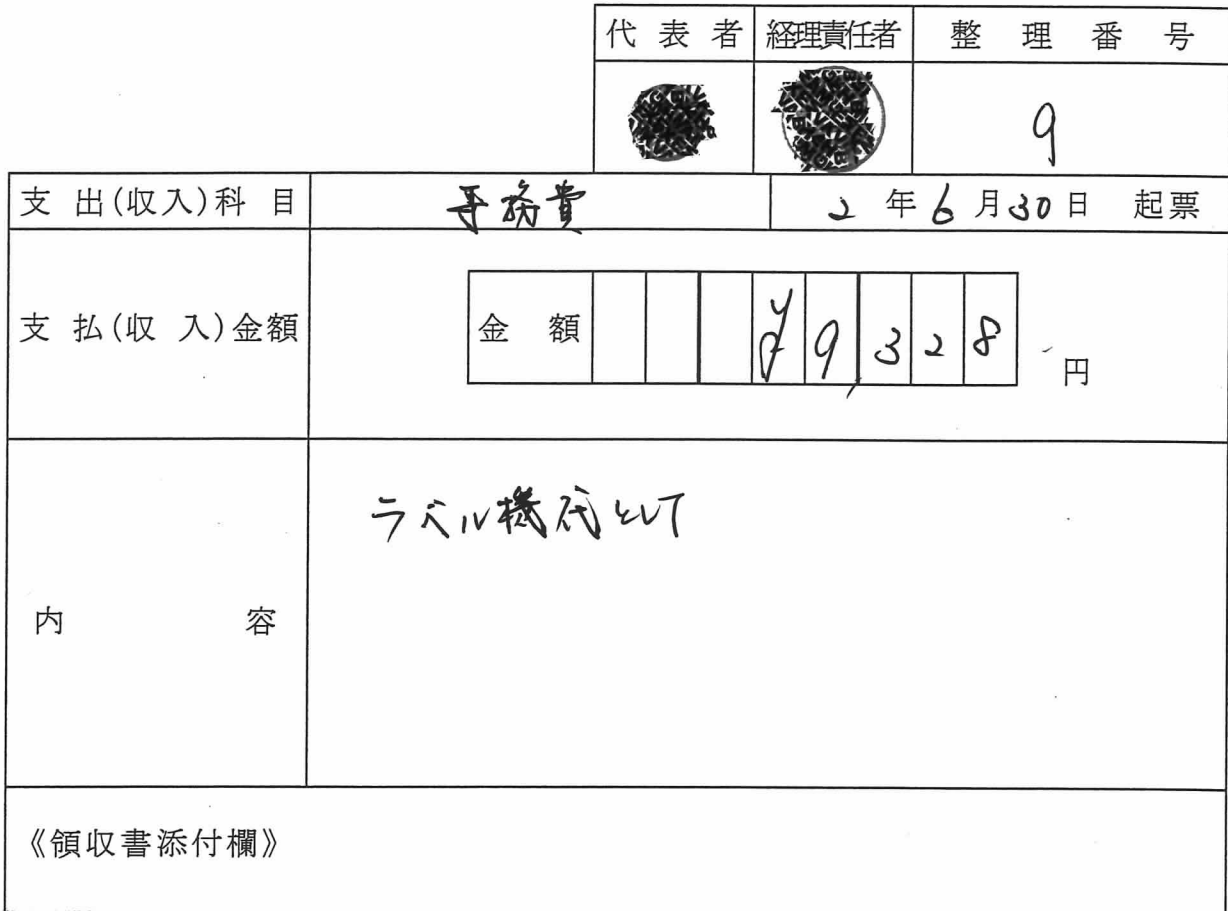 代 表 者 経理責任者 整 理 番 号
9
支 出(収入)科 目 事務費 2 年 6 月 30 日 起票
支 払(収 入)金額 金 額 ¥9,328 円
ラベル機代として
内 容
《領収書添付欄》